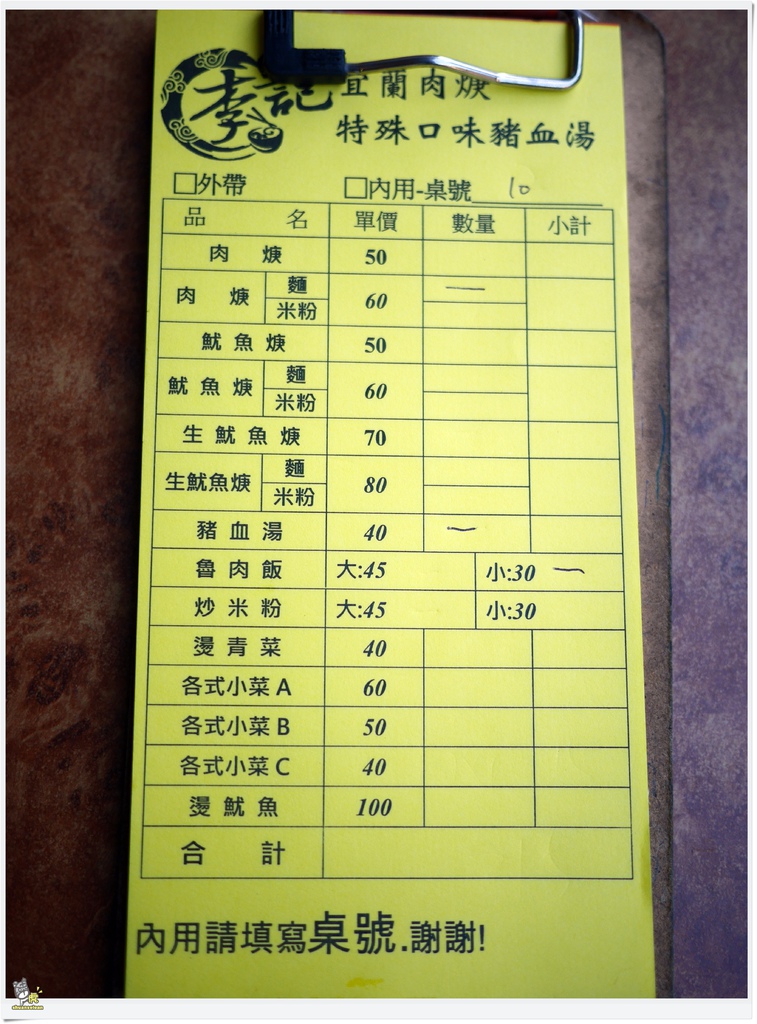 李記 宜蘭肉焿
特殊口味豬血湯
□外帶 □內用-桌號 10
品名 單價 數量 小計
肉焿 50
肉焿 麵 60 一
米粉
魷魚焿 50
魷魚焿 麵 60
米粉
生魷魚焿 70
生魷魚焿 麵 80
米粉
豬血湯 40 一
魯肉飯 大:45 小:30 一
炒米粉 大:45 小:30
燙青菜 40
各式小菜A 60
各式小菜B 50
各式小菜C 40
燙魷魚 100
合計
內用請填寫桌號.謝謝!